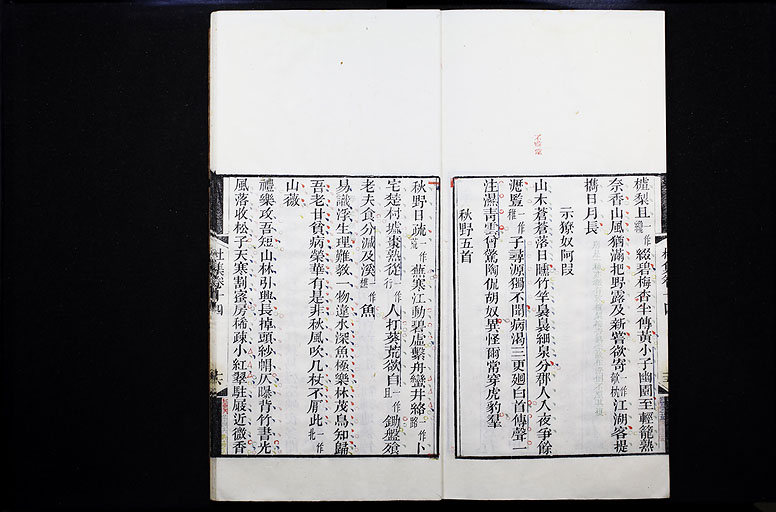 樝梨且一作綴碧梅杏半傳黃小子幽園至輕籠熟
柰香山風猶滿把野露及新嘗欹寄一作枕江湖客提
攜日月長
示獠奴阿段
山木蒼蒼落日曛竹竿裊裊細泉分郡人入夜爭餘
瀝豎一作稚子尋源獨不聞病渴三更迴白首傳聲一
注濕青雲曾驚陶侃胡奴異怪爾常穿虎豹羣
秋野五首
秋野日疏一作蕪寒江動碧虛繫舟蠻井絡一作路卜
宅楚村墟棗熟從一作行人打葵荒欲自一作且鋤盤飱
老夫食分減及溪一作魚
易識浮生理難教一物違水深魚極樂林茂鳥知歸
吾老甘貧病榮華有是非秋風吹几杖不厭此一作北
山薇
禮樂攻吾短山林引興長掉頭紗帽仄曝背竹書光
風落收松子天寒割蜜房稀疎小紅翠駐屐近微香
杜集卷十四